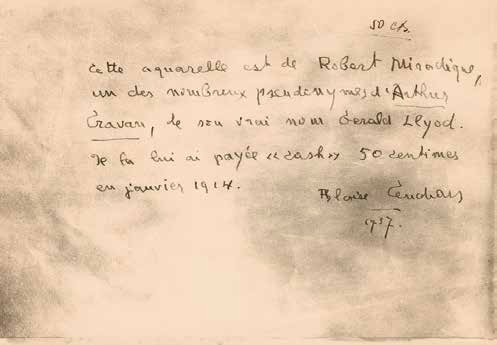 50 cts.
Cette aquarelle est de Robert Miradique,
un des nombreux pseudonymes d'Arthur
Cravan, de son vrai nom Gérald Llyod.
Je la lui ai payée «cash» 50 centimes
en janvier 1914.
Blaise Cendrars
1937.